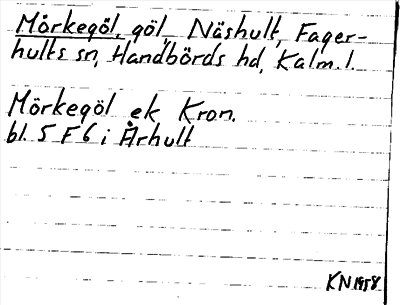 Mörkegöl, göl, Näshult, Fager-
hults sn, Handbörds hd, Kalm. l.
Mörkegöl ek Kron.
bl. 5 F 6 i Århult
KN 1958